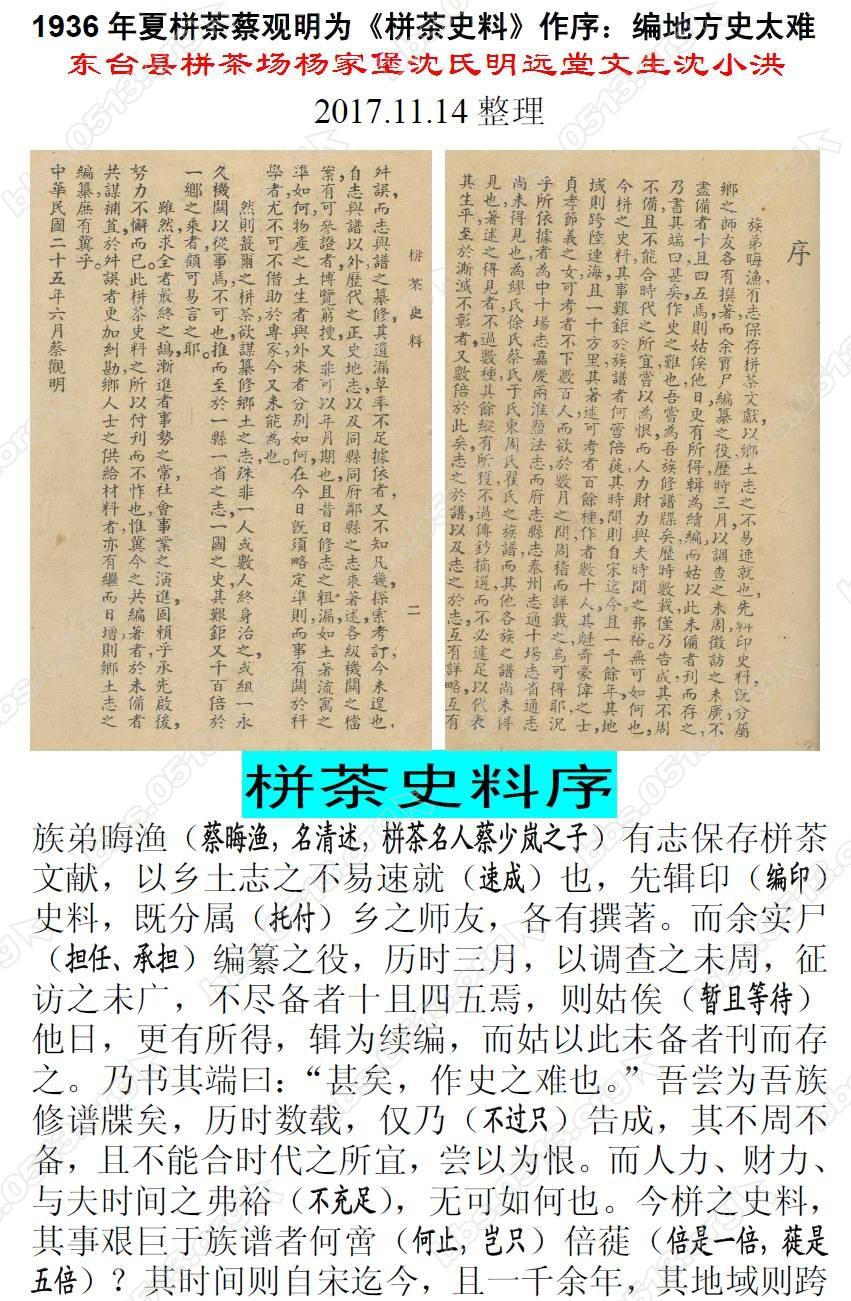 1936年夏栟茶蔡观明为《栟茶史料》作序：编地方史太难
东台县栟茶场杨家堡沈氏明远堂文生沈小洪
2017.11.14整理
序
族弟晦漁有志保存栟茶文獻，以鄉土志之不易速就也，先輯印史料，既分屬
鄉之師友，各有撰著，而余實尸編纂之役，歷時三月，以調查之未周，徵訪之未廣，不
盡備者十且四五焉，則姑俟他日更有所得，輯為續編，而姑以此未備者，刊而存之，
乃書其端曰，甚矣作史之難也，吾嘗為吾族修譜牒矣，歷時數載，僅乃告成，其不周
不備，且不能合時代之所宜，嘗以為恨，而人力財力與夫時間之弗裕，無可如何也，
今栟之史料，其事艱鉅於族譜者何啻倍蓰，其時間則自宋迄今且一千餘年，其地
域則跨陸連海，且一千方里，其著述可考者百餘種，作者數十人，其魁奇豪偉之士，
貞孝節義之女，可考者不下數百人，而欲於數月之間，周稽而詳載之，烏可得耶，況
乎所依據者，為中十場志，嘉慶兩淮鹽法志，而府志縣志泰州志通十場志省通志
尚未得見也，為繆氏徐氏蔡氏于氏東周氏翟氏之族譜，而其他各族之譜，尚未得
見也，著述之得見者，不過數種，其餘縱有所獲，不過傳鈔摘選，而不必遽足以代表
其生平，至於澌滅不彰者，又數倍於此矣，志之於譜，以及志之於志，互有詳略，互有
栟茶史料 二
舛誤，而志與譜之纂修，其遺漏草率不足據依者，又不知凡幾，探索考訂，今未遑也，
自志與譜以外，歷代之正史地志，以及同縣同府鄰縣之志乘著述，各級機關之檔
案，有可參證者，博覽窮搜，又非可以年月期也，且昔日修志之粗漏，如土著流寓之
準如何，物產之土生者與外來者分別如何，在今日既須略定準則，而事有關於科
學者，尤不可不借助於專家，今又未能為也，
然則蕞爾之栟茶，欲謀纂修鄉土之志，殊非一人或數人終身治之，或組一永
久機關以從事焉不可也，推而至於一縣一省之志，一國之史，其艱鉅又千百倍於
一鄉之乘者，顧可易言之耶，
雖然，求全者最終之鵠，漸進者事勢之常，社會事業之演進，固賴乎承先啟後，
努力不懈而已，此栟茶史料之所以付刊而不怍也，惟冀今之共編著者，於未備者
共謀補苴，於舛誤者更加糾勘，鄉人士之供給材料者，亦有繼而日增，則鄉土志之
編纂，庶有冀乎，
中華民國二十五年六月蔡觀明
栟茶史料序
族弟晦渔（蔡晦渔，名清述，栟茶名人蔡少岚之子）有志保存栟茶
文献，以乡土志之不易速就（速成）也，先辑印（编印）
史料，既分属（托付）乡之师友，各有撰著。而余实尸
（担任、承担）编纂之役，历时三月，以调查之未周，征
访之未广，不尽备者十且四五焉，则姑俟（暂且等待）
他日，更有所得，辑为续编，而姑以此未备者刊而存
之。乃书其端曰：“甚矣，作史之难也。”吾尝为吾族
修谱牒矣，历时数载，仅乃（不过只）告成，其不周不
备，且不能合时代之所宜，尝以为恨。而人力、财力、
与夫时间之弗裕（不充足），无可如何也。今栟之史料，
其事艰巨于族谱者何啻（何止，岂只）倍蓰（倍是一倍，蓰是
五倍）？其时间则自宋迄今，且一千余年，其地域则跨